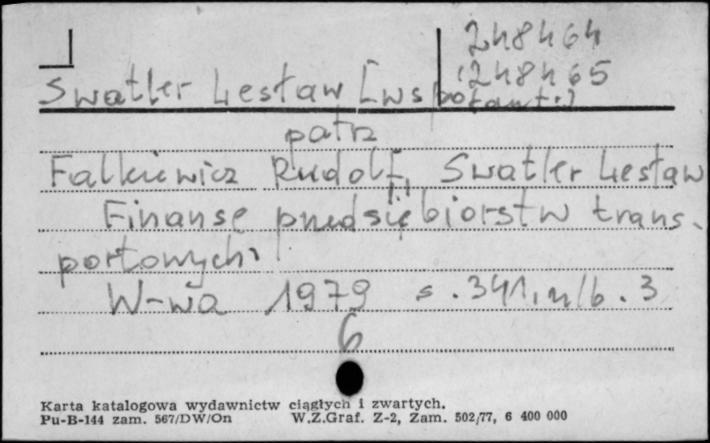 248464
248465
Swatler Lesław [współaut.]
patrz
Falkiewicz Rudolf, Swatler Lesław
Finanse przedsiębiorstw trans-
portowych.
W-wa 1979 s. 341, nlb. 3
6
Karta katalogowa wydawnictw ciągłych i zwartych.
Pu-B-144 zam. 567/DW/On W.Z.Graf. Z-2, Zam. 502/77, 6 400 000